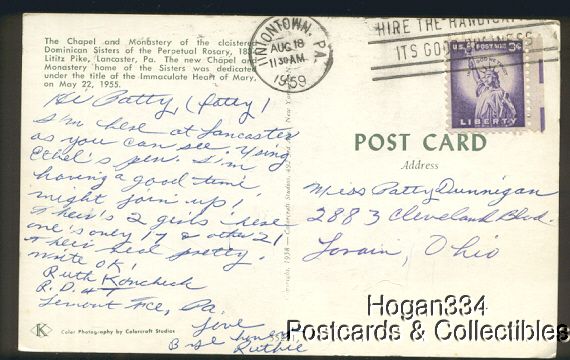 The Chapel and Monastery of the cloistered
Dominican Sisters of the Perpetual Rosary,
Lititz Pike, Lancaster, Pa. The new Chapel and
Monastery home of the Sisters was dedicated
under the title of the Immaculate Heart of Mary,
on May 22, 1955.
UNIONTOWN, PA.
AUG 18
11 30 AM
1959
HIRE THE
ITS GOOD BUSINESS
U.S. POSTAGE 3¢
LIBERTY
Hi Patty, (Patsy)
I'm here at Lancaster
as you can see. Using
Ethel's pen. I'm
having a good time
might join up!
Their's 2 girls here
one's only 17 & other 21
Their real pretty.
write OK!
Ruth Koncheck
R.D. #1
Lemont Fce, Pa.
Love
Ruthie
POST CARD
Address
Miss Patty Dunnigan
2883 Cleveland Blvd.
Lorain, Ohio
K
Color Photography by Colorcraft Studios
Hogan334
Postcards & Collectibles